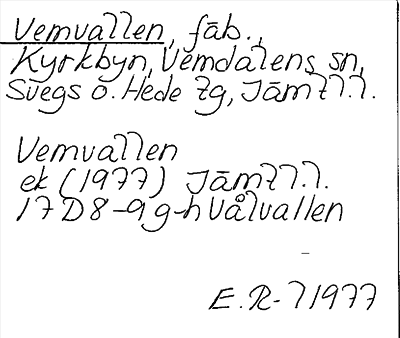 Vemvallen, fäb.,
Kyrkbyn, Vemdalens sn,
Svegs o. Hede tg, Jämtl.l.
Vemvallen
ek (1977) Jämtl.l.
17D8-9g-h Vålvallen
E.R-l 1977